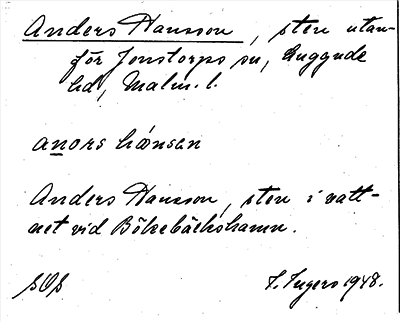 Anders Hansson, sten utan-
för Jonstorps sn, Luggude
hd, Malm. l.
anors hánsen
Anders Hansson, sten i vatt-
net vid Bökebäckshamn.
F. Ingers 1948.